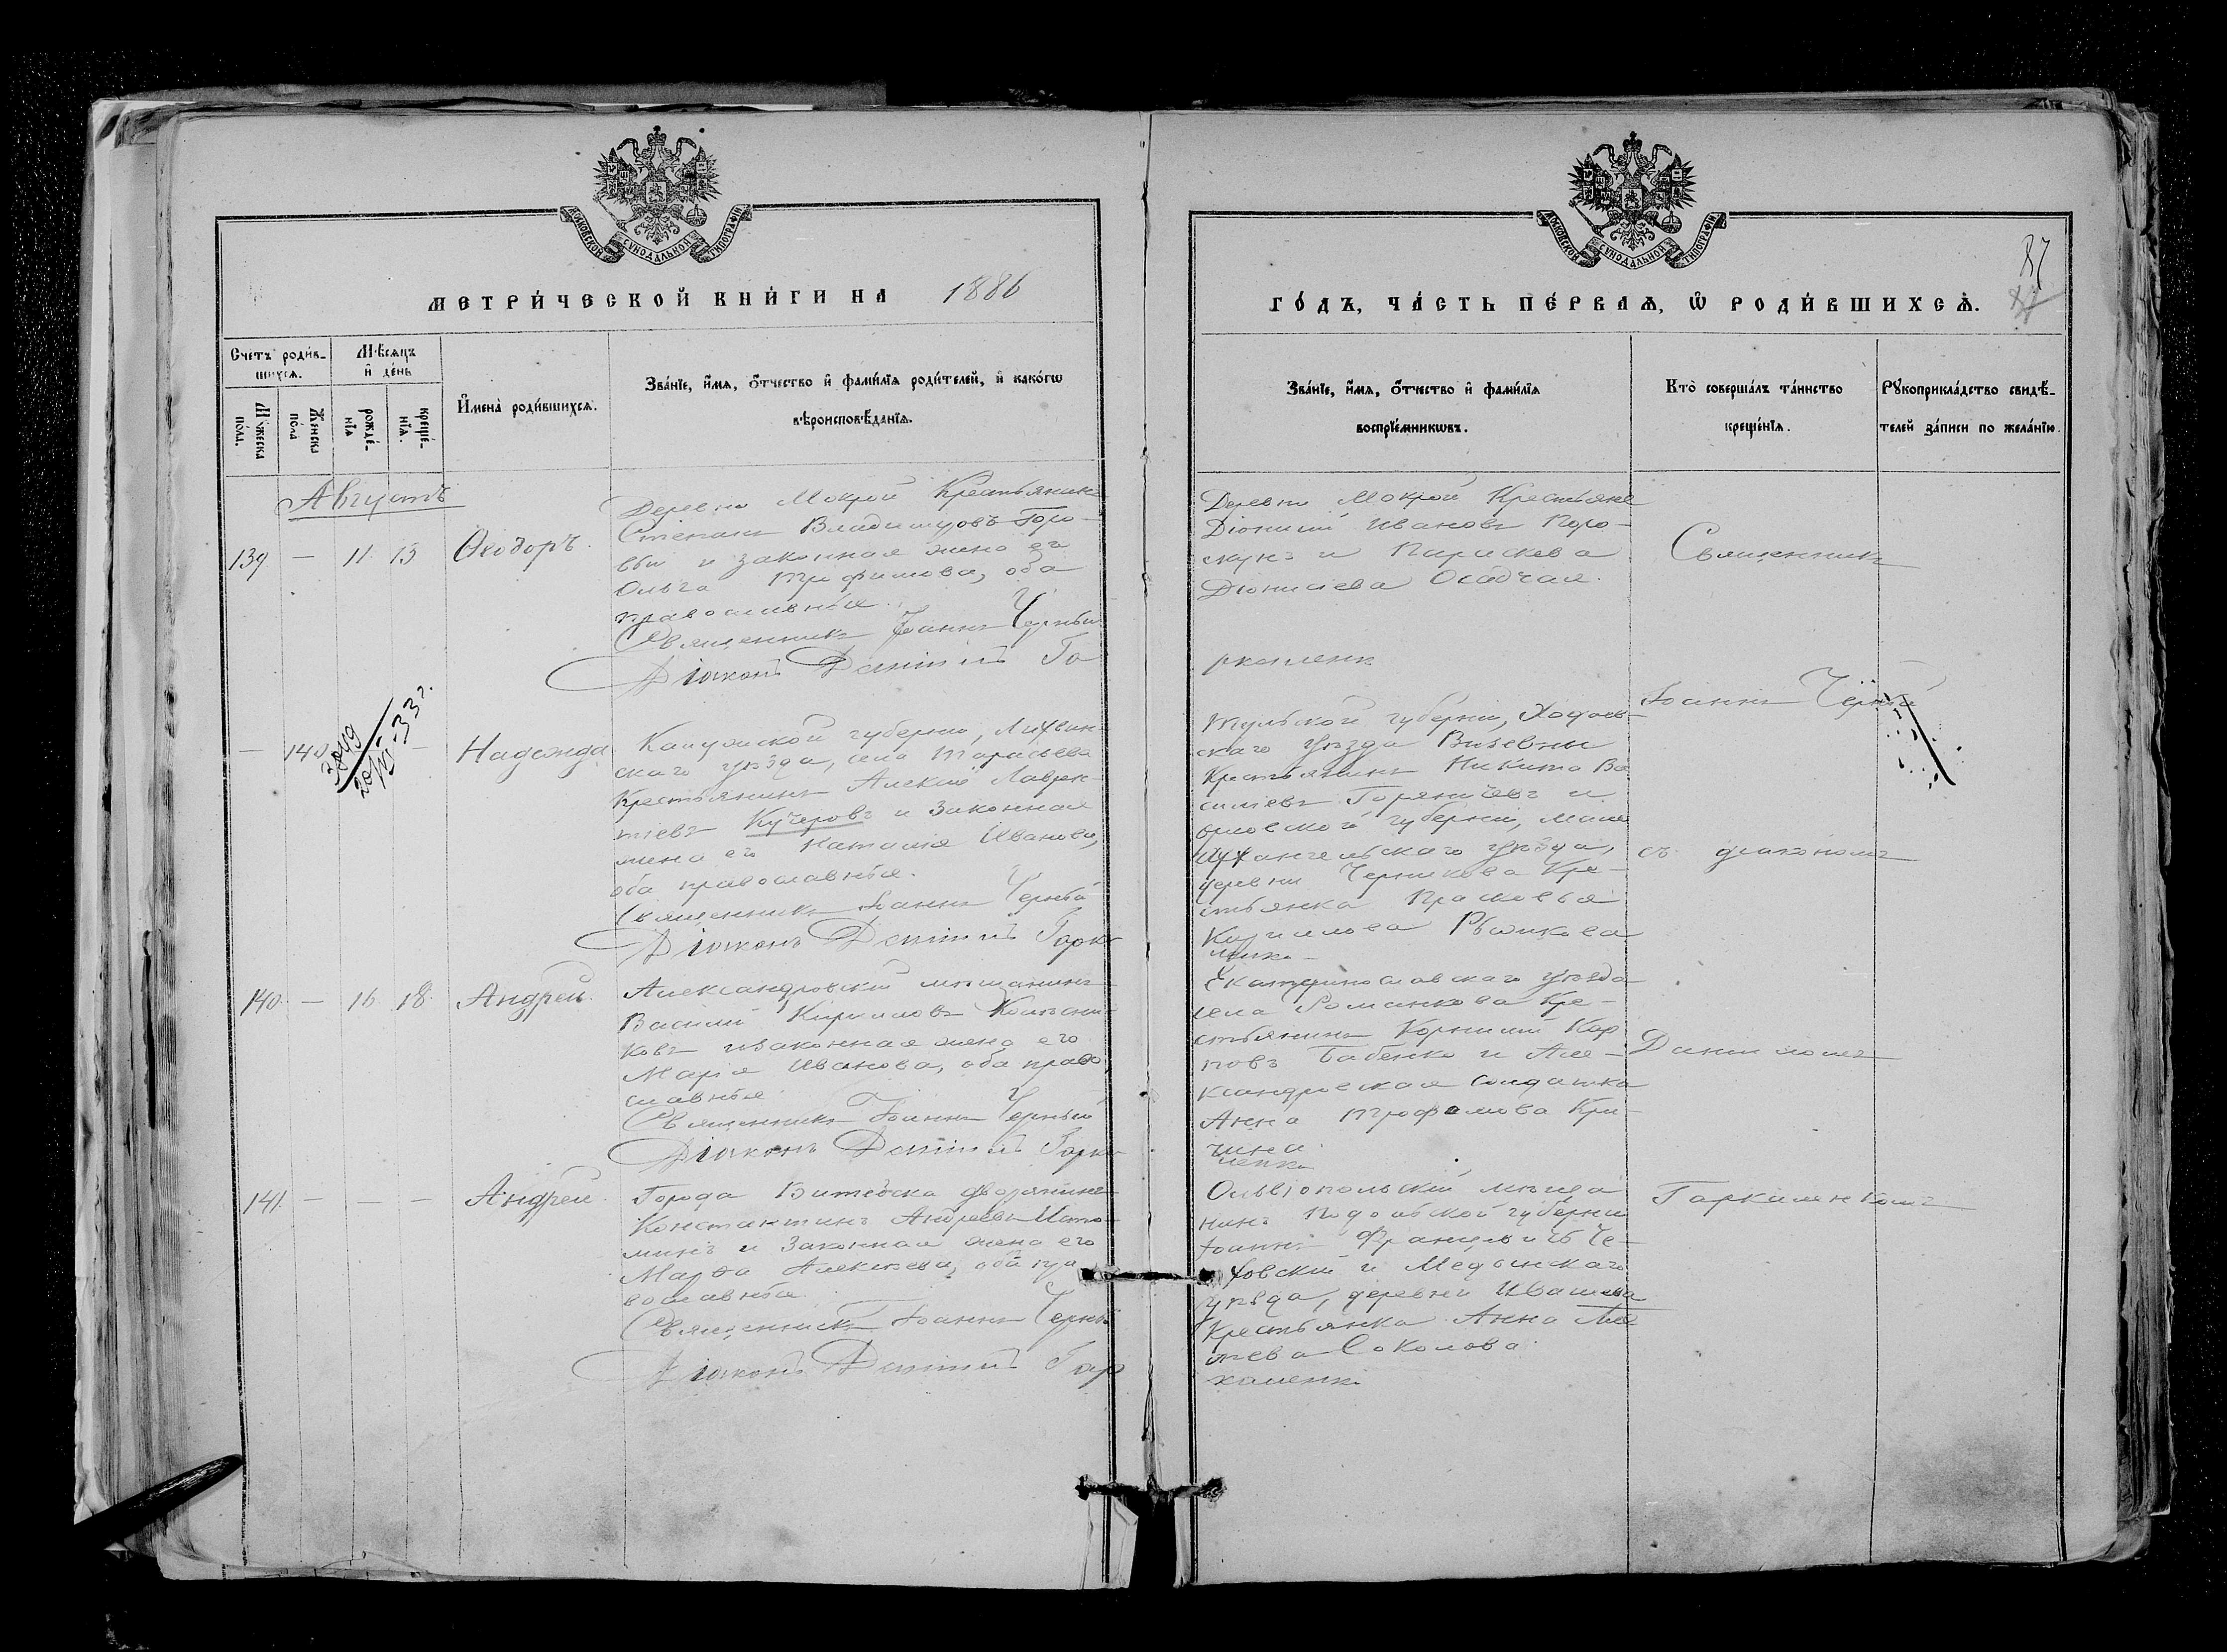 МОСКОВСКОЙ СѴНОДАЛЬНОЙ ТИПОГРАФІИ
МЕТРИ́ЧЕСКОЙ КНИ́ГИ НА 1886
Счетъ роди́в-
шихсѧ.
Мѣсѧцъ
и҆ де́нь
Мꙋжеска
по́ла.
Же́нска
по́ла
рожде́-
нїѧ
креще́-
нїѧ.
И҆мена̀ роди́вшихсѧ.
Зва́нїе, и҆́мѧ, ѻ҆́тчество и҆ фами́лїѧ роди́телей, и҆ како́гѡ
вѣроисповѣ́данїѧ.
Августъ
139 — 11. 15 Ѳеодоръ.
Деревни Мокрой Крестьянинъ
Стефанъ Владимировъ Горо-
вый и законная жена его
Ольга Трофимова, оба
православные.
Священникъ Іоаннъ Черный
Діаконъ Даніилъ Га
— 140 — Надежда
3849
20/VI-33 г.
Калужской губерніи, Лихвин-
скаго уѣзда, села Тарасьева
Крестьянинъ Алексій Лаврен-
тіевъ Кучеровъ и законная
жена его Наталія Иванова,
оба православные.
Священникъ Іоаннъ Черный
Діаконъ Даніилъ Гарка
140. — 16 18. Андрей.
Александровскій мѣщанинъ
Василій Кириловъ Колесни-
ковъ и законная жена его
Марія Иванова, оба право
славные
Священникъ Іоаннъ Черный
Діаконъ Даніилъ Гарка
141. — — — Андрей.
Города Витебска дворянинъ
Константинъ Андреевъ Исто-
минъ и законная жена его
Марѳа Алексѣева, оба пра
вославные.
Священникъ Іоаннъ Черный
Діаконъ Даніилъ Гар
МОСКОВСКОЙ СѴНОДАЛЬНОЙ ТИПОГРАФІИ
87
ГО́ДЪ, ЧА́СТЬ ПЕ́РВАѦ, Ѡ҆ РОДИ́ВШИХСѦ.
Зва́нїе, и҆́мѧ, ѻ҆́тчество и҆ фами́лїѧ
воспрїе́мникѡвъ.
Кто̀ соверша́лъ та́инство
креще́нїѧ.
Рꙋкоприкла́дство свидѣ́-
телей за́писи по жела́нїю.
Деревни Мокрой Крестьяне
Діонисій Ивановъ
и Параскева
Діонисіева Осадчая.
ркаленк
Тульской губерніи,
скаго уѣзда
Крестьянинъ Никита Ва
силіевъ Горяничевъ и
Орловской губерніи, Мало
Архангельскаго уѣзда,
деревни Черникова Кре-
стьянка Прасковья
Кирилова
ленко
Екатеринославскаго уѣзда
села Романкова Кре-
стьянинъ Корнилій Кар
повъ Бабенко и Але-
ксандровская солдатка
Анна Трофимова Кри-
ленко
Ольвіопольскій мѣща
нинъ Подольской губерніи
Іоаннъ Францовичъ Че-
ховскій и Медынскаго
уѣзда, деревни
Крестьянка Анна
Соколова.
каленко
Священникъ
Іоаннъ Черный
съ діакономъ
Даніиломъ
Гаркаленкомъ